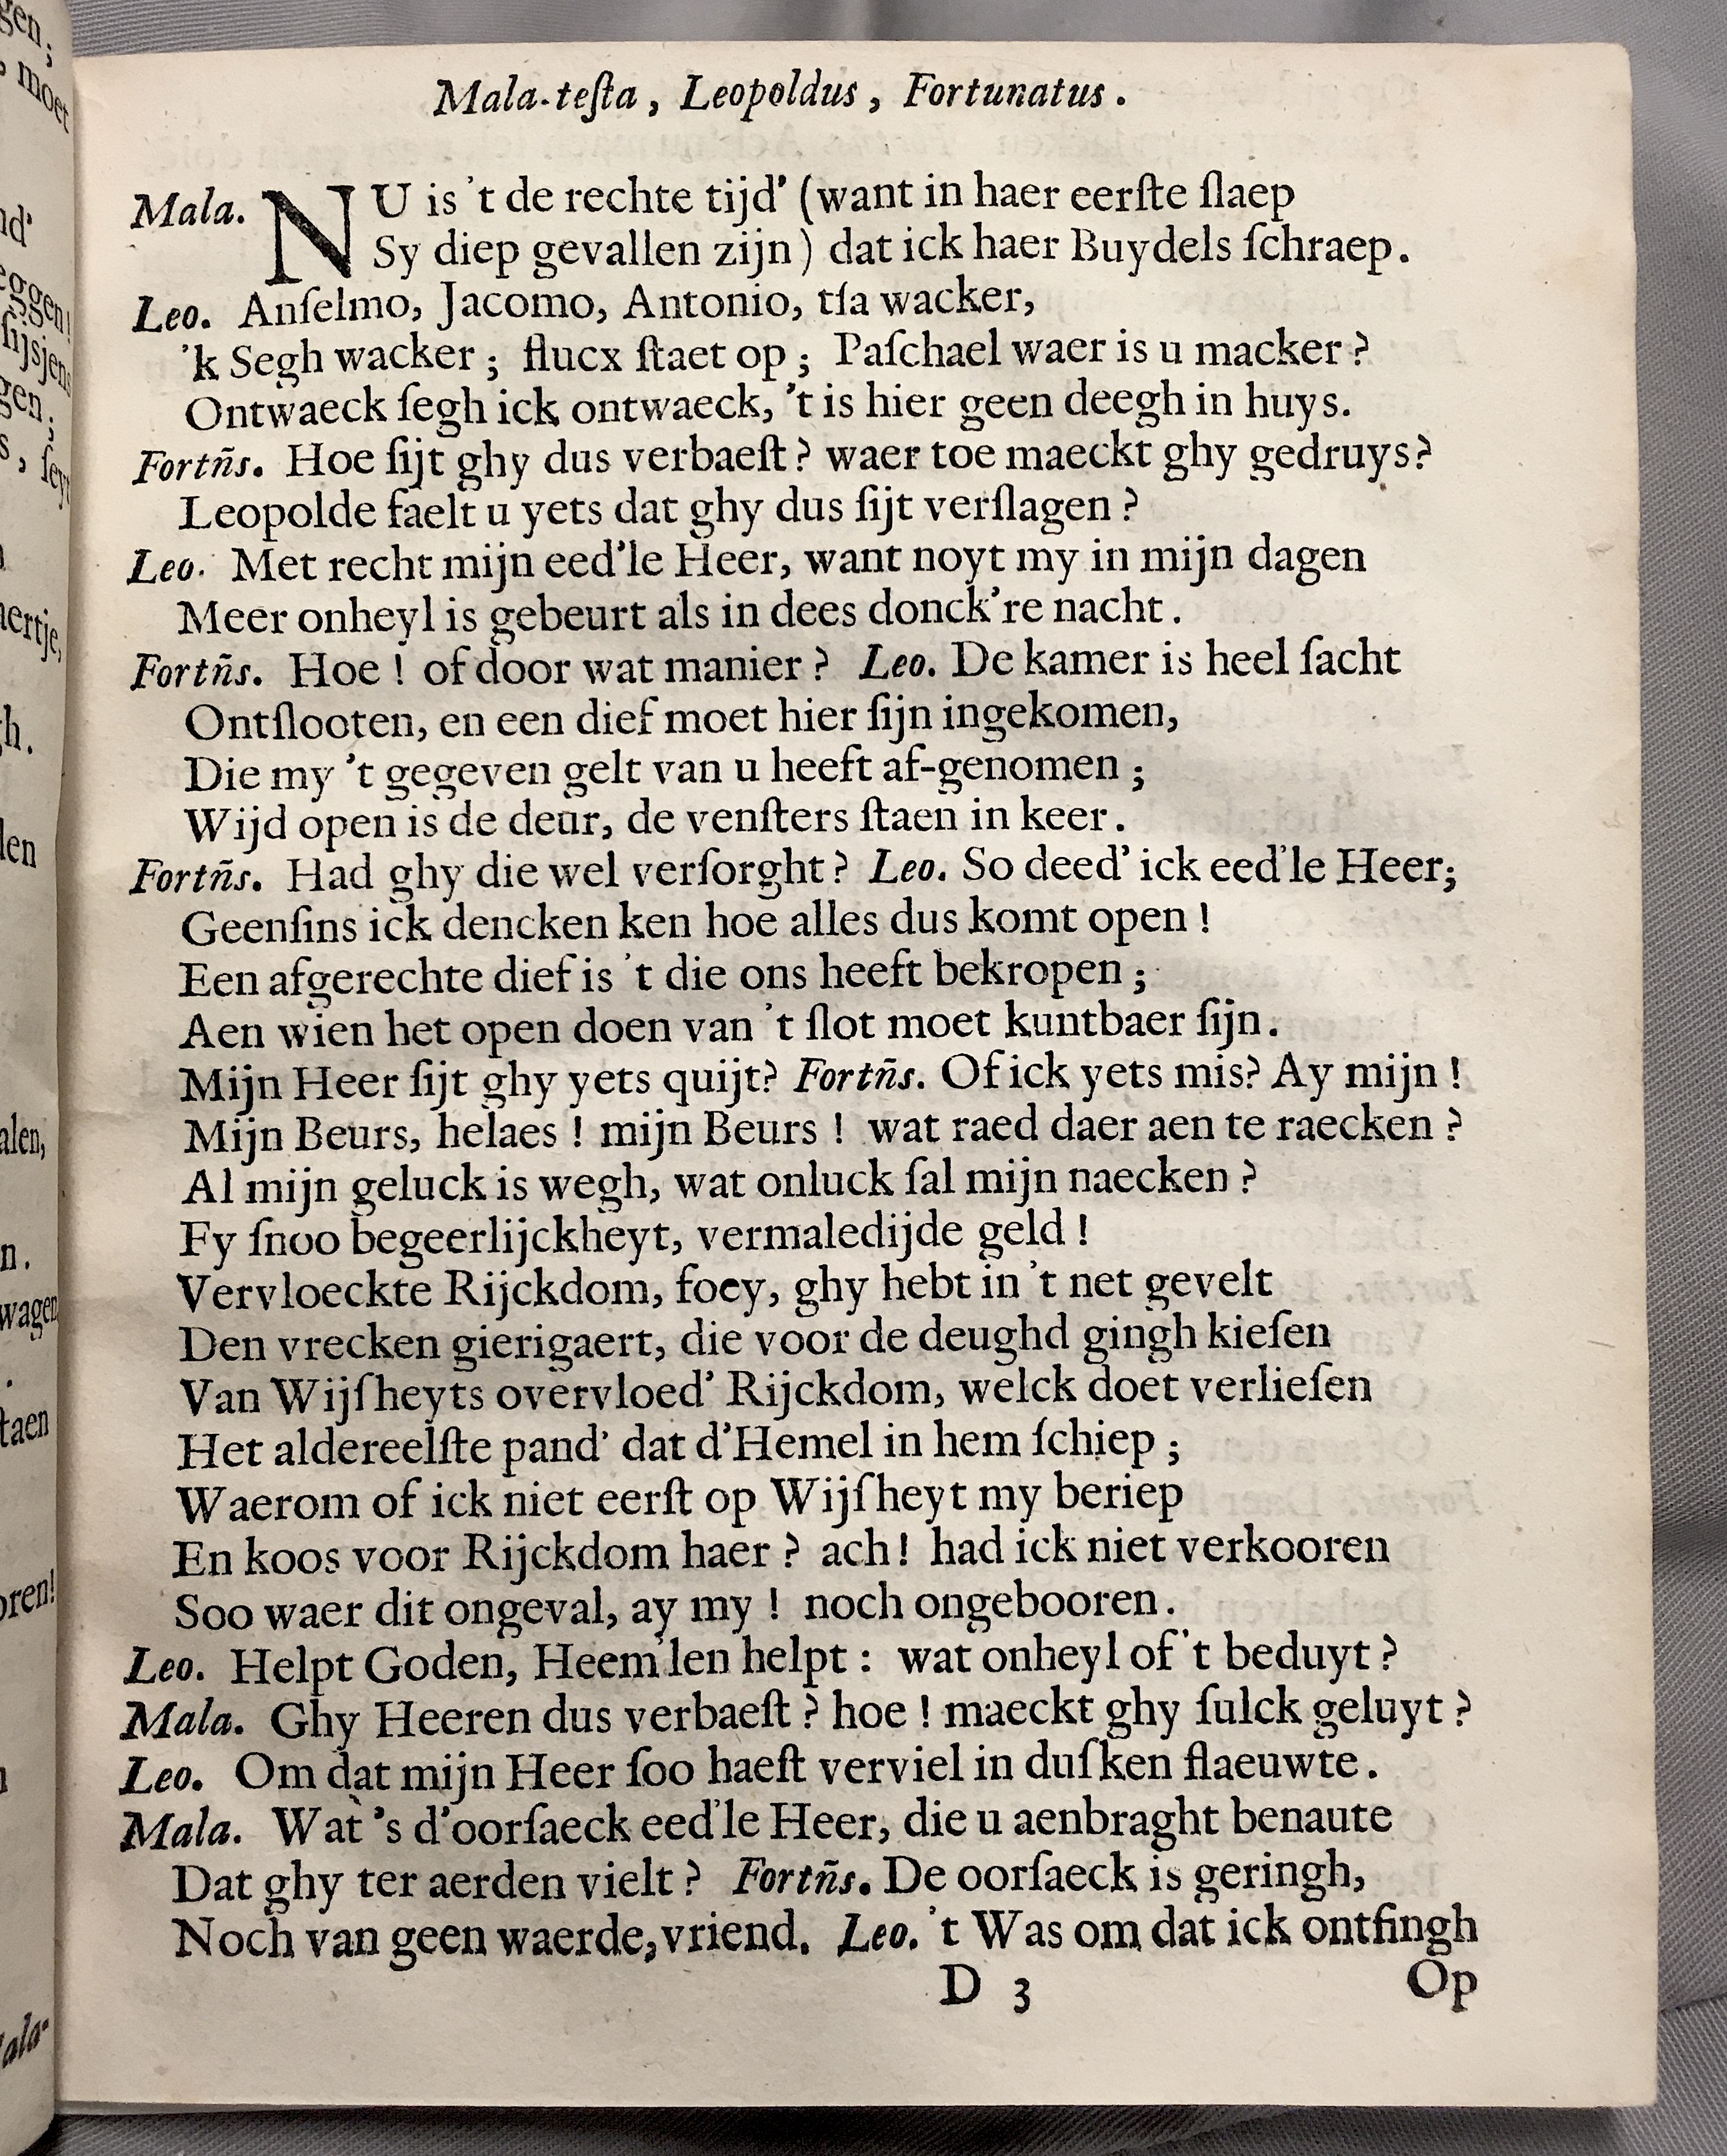 Mala-teſta, Leopoldus, Fortunatus.
Mala. NU is 't de rechte tijd' (want in haer eerſte ſlaep
Sy diep gevallen zijn) dat ick haer Buydels ſchraep.
Leo. Anſelmo, Jacomo, Antonio, tſa wacker,
'k Segh wacker; flucx ſtaet op; Paſchael waer is u macker?
Ontwaeck ſegh ick ontwaeck, 't is hier geen deegh in huys.
Fortñs. Hoe ſijt ghy dus verbaeſt? waer toe maeckt ghy gedruys?
Leopolde faelt u yets dat ghy dus ſijt verſlagen?
Leo. Met recht mijn eed'le Heer, want noyt my in mijn dagen
Meer onheyl is gebeurt als in dees donck're nacht.
Fortñs. Hoe! of door wat manier? Leo. De kamer is heel ſacht
Ontſlooten, en een dief moet hier ſijn ingekomen,
Die my 't gegeven gelt van u heeft af-genomen;
Wijd open is de deur, de venſters ſtaen in keer.
Fortñs. Had ghy die wel verſorght? Leo. So deed' ick eed'le Heer;
Geenſins ick dencken ken hoe alles dus komt open!
Een afgerechte dief is 't die ons heeft bekropen;
Aen wien het open doen van 't ſlot moet kuntbaer ſijn.
Mijn Heer ſijt ghy yets quijt? Fortñs. Of ick yets mis? Ay mijn!
Mijn Beurs, helaes! mijn Beurs! wat raed daer aen te raecken?
Al mijn geluck is wegh, wat onluck ſal mijn naecken?
Fy ſnoo begeerlijckheyt, vermaledijde geld!
Vervloeckte Rijckdom, foey, ghy hebt in 't net gevelt
Den vrecken gierigaert, die voor de deughd gingh kieſen
Van Wijſheyts overvloed' Rijckdom, welck doet verlieſen
Het aldereelſte pand' dat d'Hemel in hem ſchiep;
Waerom of ick niet eerſt op Wijſheyt my beriep
En koos voor Rijckdom haer? ach! had ick niet verkooren
Soo waer dit ongeval, ay my! noch ongebooren.
Leo. Helpt Goden, Heem'len helpt: wat onheyl of 't beduyt?
Mala. Ghy Heeren dus verbaeſt? hoe! maeckt ghy ſulck geluyt?
Leo. Om dat mijn Heer ſoo haeſt verviel in duſken flaeuwte.
Mala. Wat 's d'oorſaeck eed'le Heer, die u aenbraght benaute
Dat ghy ter aerden vielt? Fortñs. De oorſaeck is geringh,
Noch van geen waerde, vriend. Leo. 't Was om dat ick ontfingh
D 3 Op